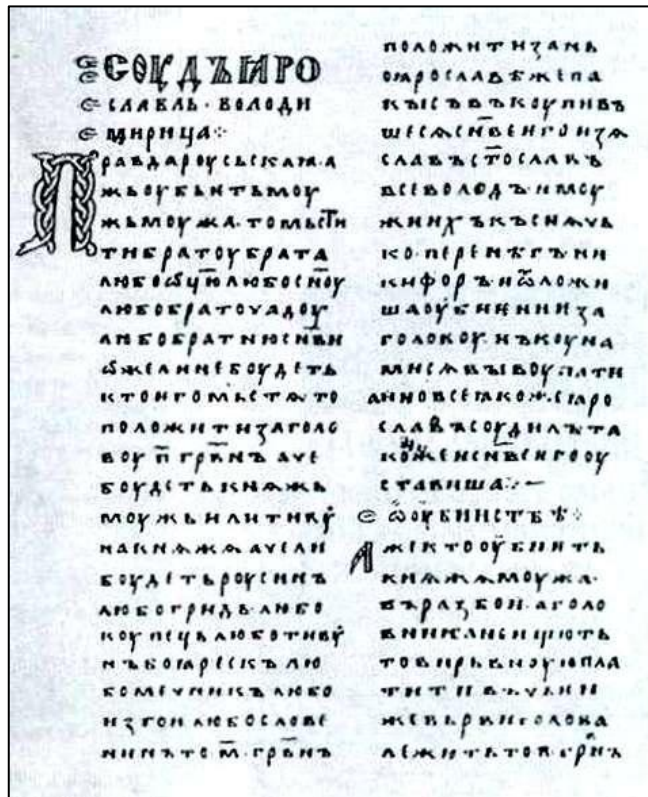 СОУДЪ ꙖРО
СЛАВЛЬ · ВОЛОДИ
МИРИЦА ⁘
Правда роусьскаꙗ · а
жь оубьѥть моу
жь моужа · то мьсти
ти братоу брата
любо ѿцю любо сн҃оу
любо братоучадоу
любо братню сн҃ви
ѡже ли не боудеть
кто ѥго мьстѧ то
положити за голо
воу п҃ грв҃нъ аче
боудеть кнѧжь
моужь или тивоу
на кнѧжѧ аче ли
боудеть роусинъ
любо гридь · любо
коупець любо тивоу
нъ боꙗрескъ лю
бо мечникъ любо
изгои любо слове
нинъ то · м҃ · грв҃нъ
положити за нь
по ꙗрославѣ же па
кы съвъкоупивъ
шесѧ сн҃ве ѥго изѧ
славъ ст҃ославъ
всеволодъ · и моу
жи ихъ къснѧчь
ко · перенѣгъ ни
кифоръ и ѿложи
ша оубиѥниѥ за
голову нъ коуна
ми сѧ выкоупати
а ино все ꙗкоже ꙗро
славъ соудилъ та
коже и сн҃ве ѥго оу
ставиша ⁘ —
ѡ оубииствѣ ⁘
Аже кто оубиѥть
кнѧжѧ моужа ·
въ разбои · а голо
вника не ищють
то вирьвноую пла
тити въ чьѥи
же вьрви голова
лежить то п҃ грв҃нъ